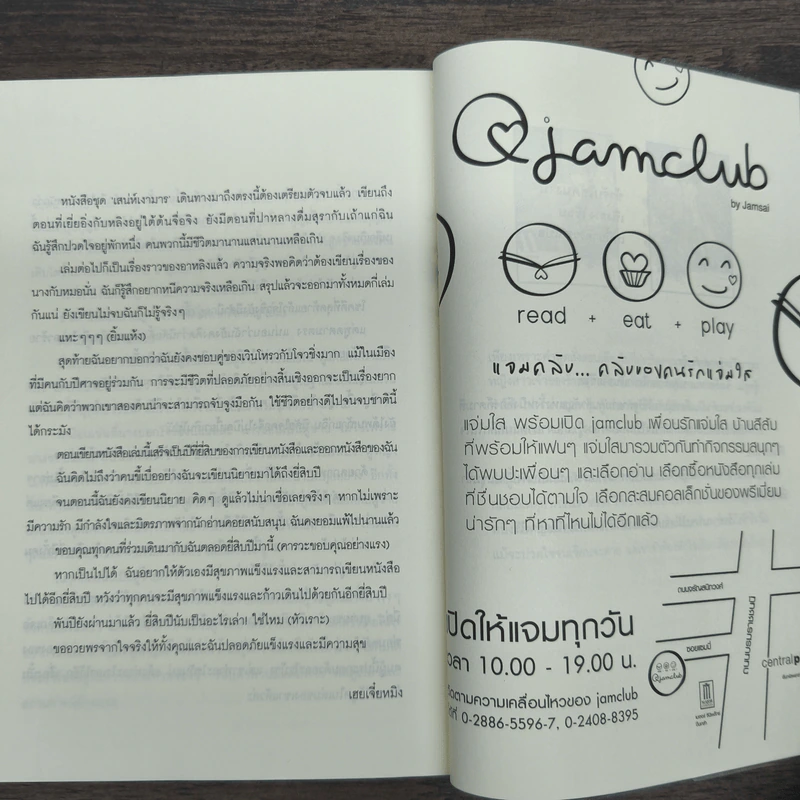 หนังสือชุด 'เสน่ห์เงามาร' เดินทางมาถึงตรงนี้ต้องเตรียมตัวจบแล้ว เขียนถึง
ตอนที่เยี่ยอิ่งกับหลิงอยู่ได้ต้นจื่อจิง ยังมีตอนที่ปาหลางดื่มสุรากับเถ้าแก่ฉิน
ฉันรู้สึกปวดใจอยู่พักหนึ่ง คนพวกนี้มีชีวิตมานานแสนนานเหลือเกิน
เล่มต่อไปก็เป็นเรื่องราวของอาหลิงแล้ว ความจริงพอคิดว่าต้องเขียนเรื่องของ
นางกับหมอนั่น ฉันก็รู้สึกอยากหนีความจริงเหลือเกิน สรุปแล้วจะออกมาทั้งหมดกี่เล่ม
กันแน่ ยังเขียนไม่จบฉันก็ไม่รู้จริงๆ
แหะๆๆๆ (ยิ้มแห้ง)
สุดท้ายฉันอยากบอกว่าฉันยังคงชอบคู่ของเวินโหรวกับโจวชิ่งมาก แม้ในเมือง
ที่มีคนกับปีศาจอยู่ร่วมกัน การจะมีชีวิตที่ปลอดภัยอย่างสิ้นเชิงออกจะเป็นเรื่องยาก
แต่ฉันคิดว่าพวกเขาสองคนน่าจะสามารถจับจูงมือกัน ใช้ชีวิตอย่างดีไปจนจบชาตินี้
ได้กระมัง
ตอนเขียนหนังสือเล่มนี้เสร็จเป็นปีที่ยี่สิบของการเขียนหนังสือและออกหนังสือของฉัน
ฉันคิดไม่ถึงว่าคนขี้เบื่ออย่างฉันจะเขียนนิยายมาได้ถึงยี่สิบปี
จนตอนนี้ฉันยังคงเขียนนิยาย คิดๆ ดูแล้วไม่น่าเชื่อเลยจริงๆ หากไม่เพราะ
มีความรัก มีกำลังใจและมิตรภาพจากนักอ่านคอยสนับสนุน ฉันคงยอมแพ้ไปนานแล้ว
ขอบคุณทุกคนที่ร่วมเดินมากับฉันตลอดยี่สิบปีมานี้ (คารวะขอบคุณอย่างแรง)
หากเป็นไปได้ ฉันอยากให้ตัวเองมีสุขภาพแข็งแรงและสามารถเขียนหนังสือ
ไปได้อีกยี่สิบปี หวังว่าทุกคนจะมีสุขภาพแข็งแรงและก้าวเดินไปด้วยกันอีกยี่สิบปี
พันปียังผ่านมาแล้ว ยี่สิบปีนับเป็นอะไรเล่า! ใช่ไหม (หัวเราะ)
ขออวยพรจากใจจริงให้ทั้งคุณและฉันปลอดภัยแข็งแรงและมีความสุข
เฮยเจี๋ยหมิง
@jamclub
by Jamsai
read + eat + play
แจมคลับ... คลับของคนรักแจ่มใส
แจ่มใส พร้อมเปิด jamclub เพื่อนรักแจ่มใส บ้านสีส้ม
ที่พร้อมให้แฟนๆ แจ่มใสมารวมตัวกันทำกิจกรรมสนุกๆ
ได้พบปะเพื่อนๆ และเลือกอ่าน เลือกซื้อหนังสือทุกเล่ม
ที่ชื่นชอบได้ตามใจ เลือกสะสมคอลเล็กชั่นของพรีเมี่ยม
น่ารักๆ ที่หาที่ไหนไม่ได้อีกแล้ว
ถนนจรัญสนิทวงศ์
ถนนบรมราชชนนี
ปิดให้แจมทุกวัน
วลา 10.00 - 19.00 น.
ซอยแชมป์
@jamclub
central
ติดตามความเคลื่อนไหวของ jamclub
ที่ 0-2886-5596-7, 0-2408-8395